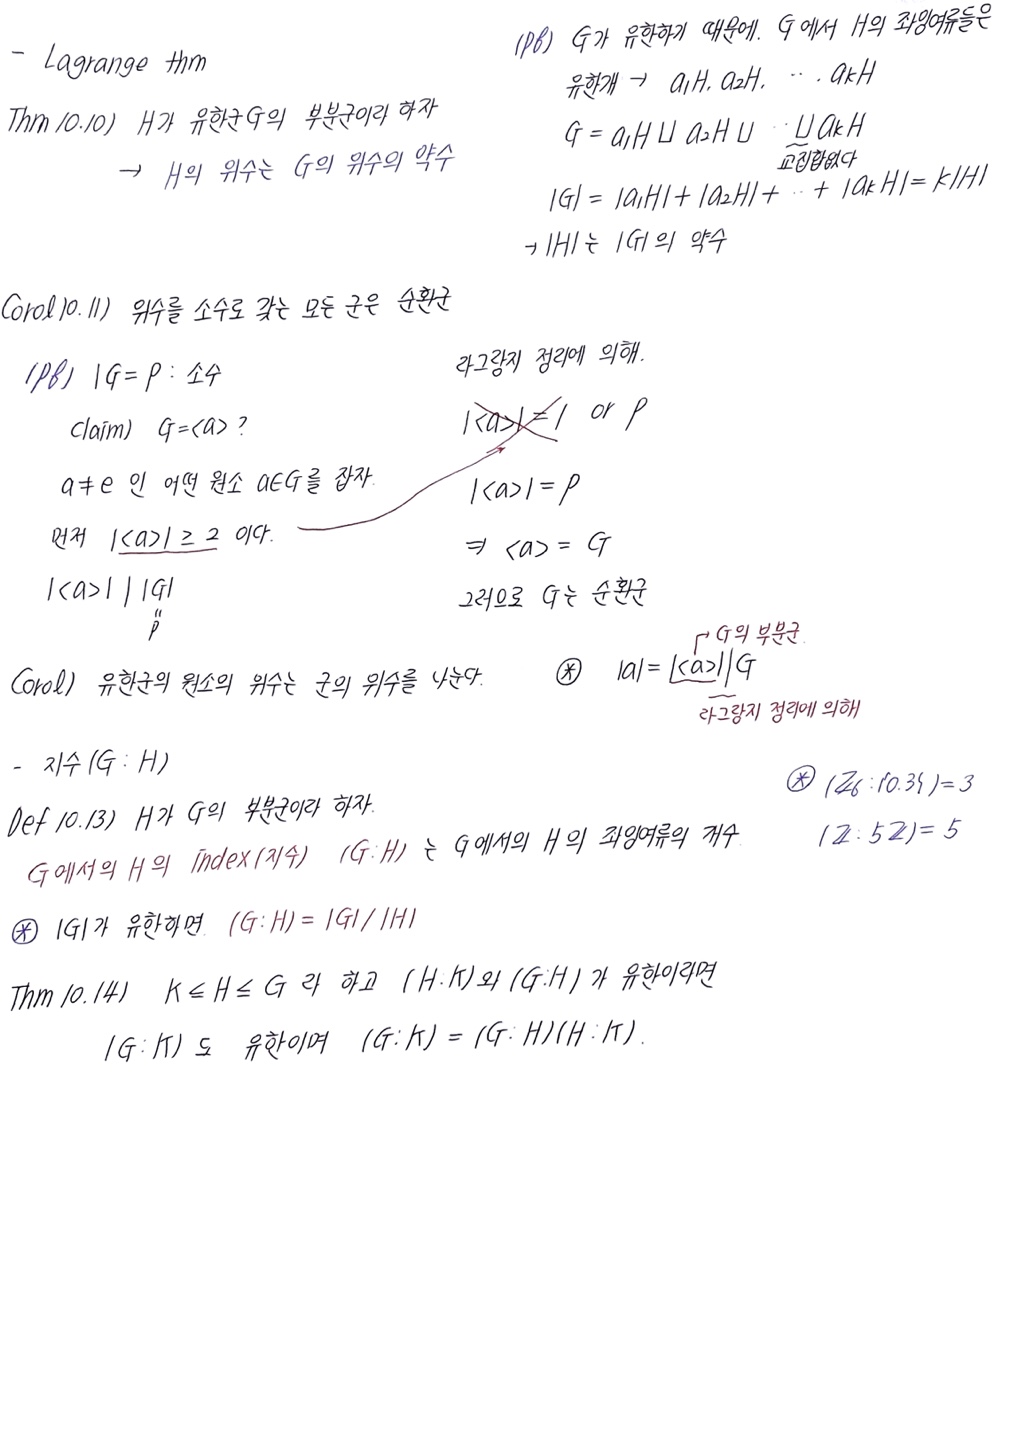 - Lagrange thm
Thm 10.10) H가 유한군 G의 부분군이라 하자
→ H의 위수는 G의 위수의 약수
(pf) G가 유한하기 때문에. G에서 H의 좌잉여류들은
유한개 → a₁H. a₂H. ‥. aₖH
G = a₁H ⊔ a₂H ⊔ ‥ ⊔ aₖH
교집합없다
|G| = |a₁H| + |a₂H| + ‥ + |aₖH| = k|H|
→ |H|는 |G|의 약수
Corol 10.11) 위수를 소수로 갖는 모든 군은 순환군
(pf) |G = p : 소수
claim) G=<a> ?
a≠e 인 어떤 원소 a∈G를 잡자.
먼저 |<a>| ≥ 2 이다.
|<a>| | |G|
"
p
라그랑지 정리에 의해.
|<a>| = 1 or p
|<a>| = p
⇒ <a> = G
그러므로 G는 순환군
Corol) 유한군의 원소의 위수는 군의 위수를 나눈다.
→ G의 부분군
⊛ |a| = |<a>| | G
라그랑지 정리에 의해
- 지수 (G : H)
Def 10.13) H가 G의 부분군이라 하자.
G에서의 H의 index(지수) (G:H) 는 G에서의 H의 좌잉여류의 개수
⊛ (ℤ₆ : {0.3}) = 3
(ℤ : 5ℤ) = 5
⊛ |G|가 유한하면. (G:H) = |G| / |H|
Thm 10.14) K ≤ H ≤ G 라 하고 (H:K)와 (G:H)가 유한이라면
(G:K) 도 유한이며 (G:K) = (G:H)(H:K).